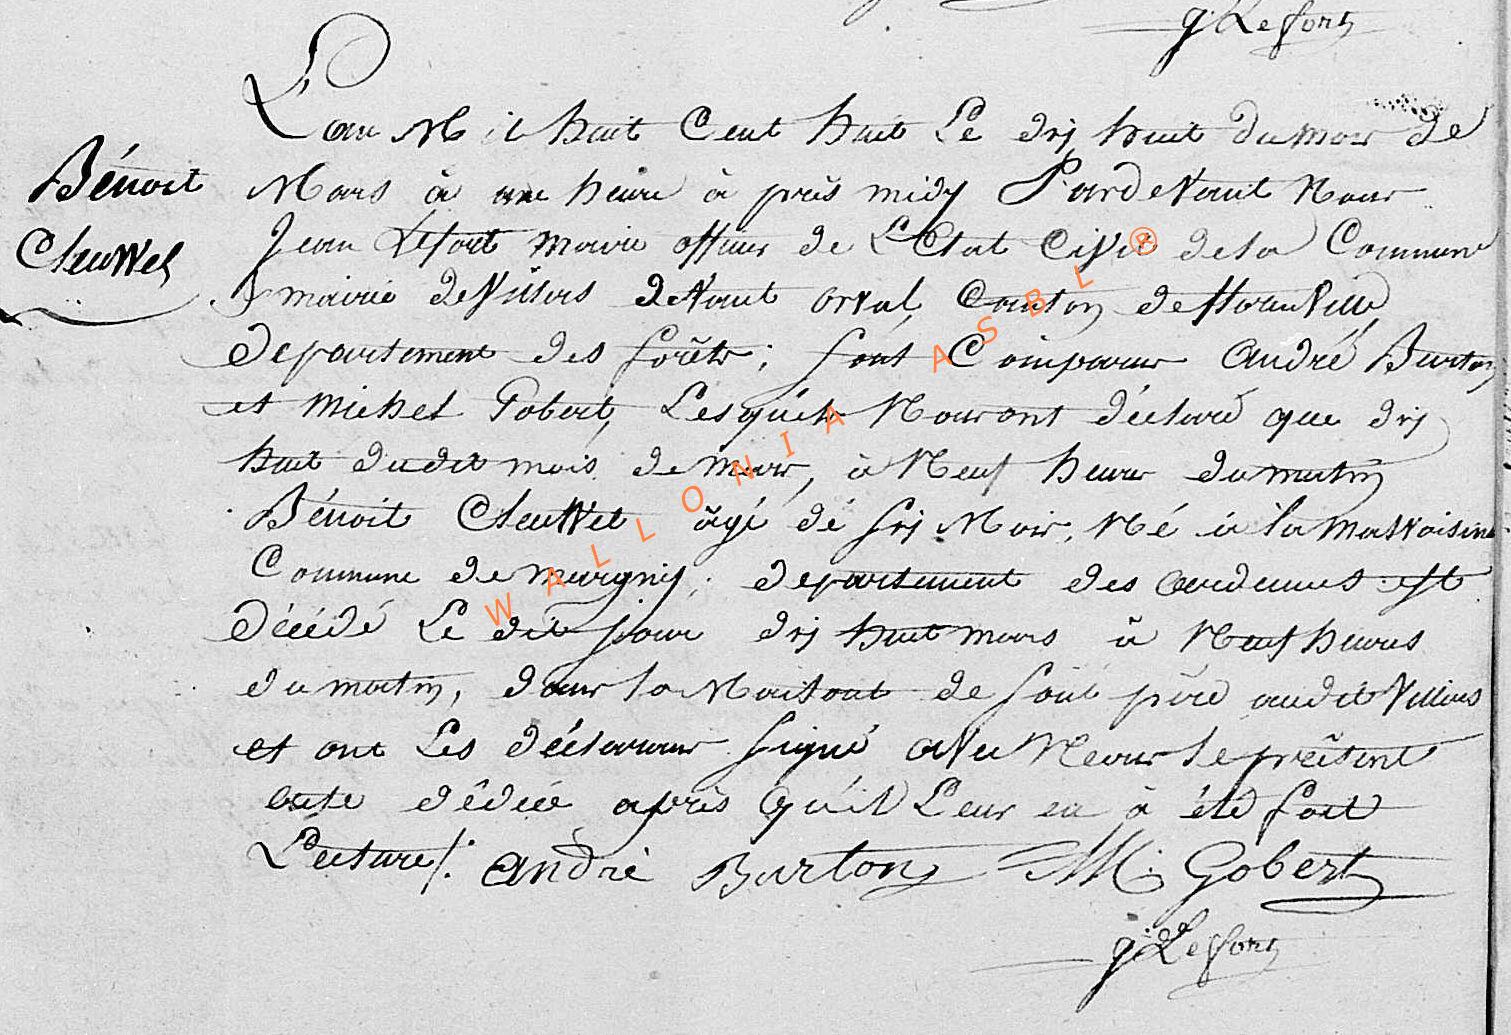 g. Lefort
L'an Mil huit Cent huit Le dix huit du mois de
Bénoit
Mars à une heure à près midy Pardevant Nous
Cleuvvet
Jean Lefort maire officier de L'Etat Civil de la Commune
mairie de Villers devant orval, Canton de florenville
departement des forêts; sont Comparus André Burton
et michel Gobert, Lesquels Nous ont déclaré que dix
huit dudit mois de mars, à Neuf heures du matin
Bénoit Cleuvvet âgé dé six Mois, Né à la malvoisine
Commune de margny, departement des ardennes est
décédé Le dit jour dix huit mars à Neuf heures
du matin, dans la Maison de sont père audit Villers
et ont Les déclarans signé avec Nous le présent
acte dêdiée après qu'il Leur en à été fait
Lecture /. André Burton M. Gobert
g. Lefort
WALLONIA ASBL ®